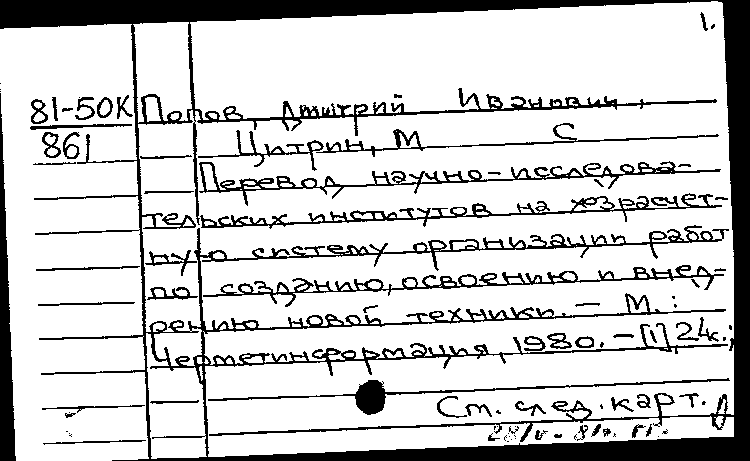 1.
81-50К Попов, Дмитрий Иванович,
861 Цитрин, М С
Перевод научно-исследова-
тельских институтов на хозрасчет-
ную систему организации работ
по созданию, освоению и внед-
рению новой техники. – М.:
Черметинформация, 1980. – [1], 24с.;
См. след. карт.